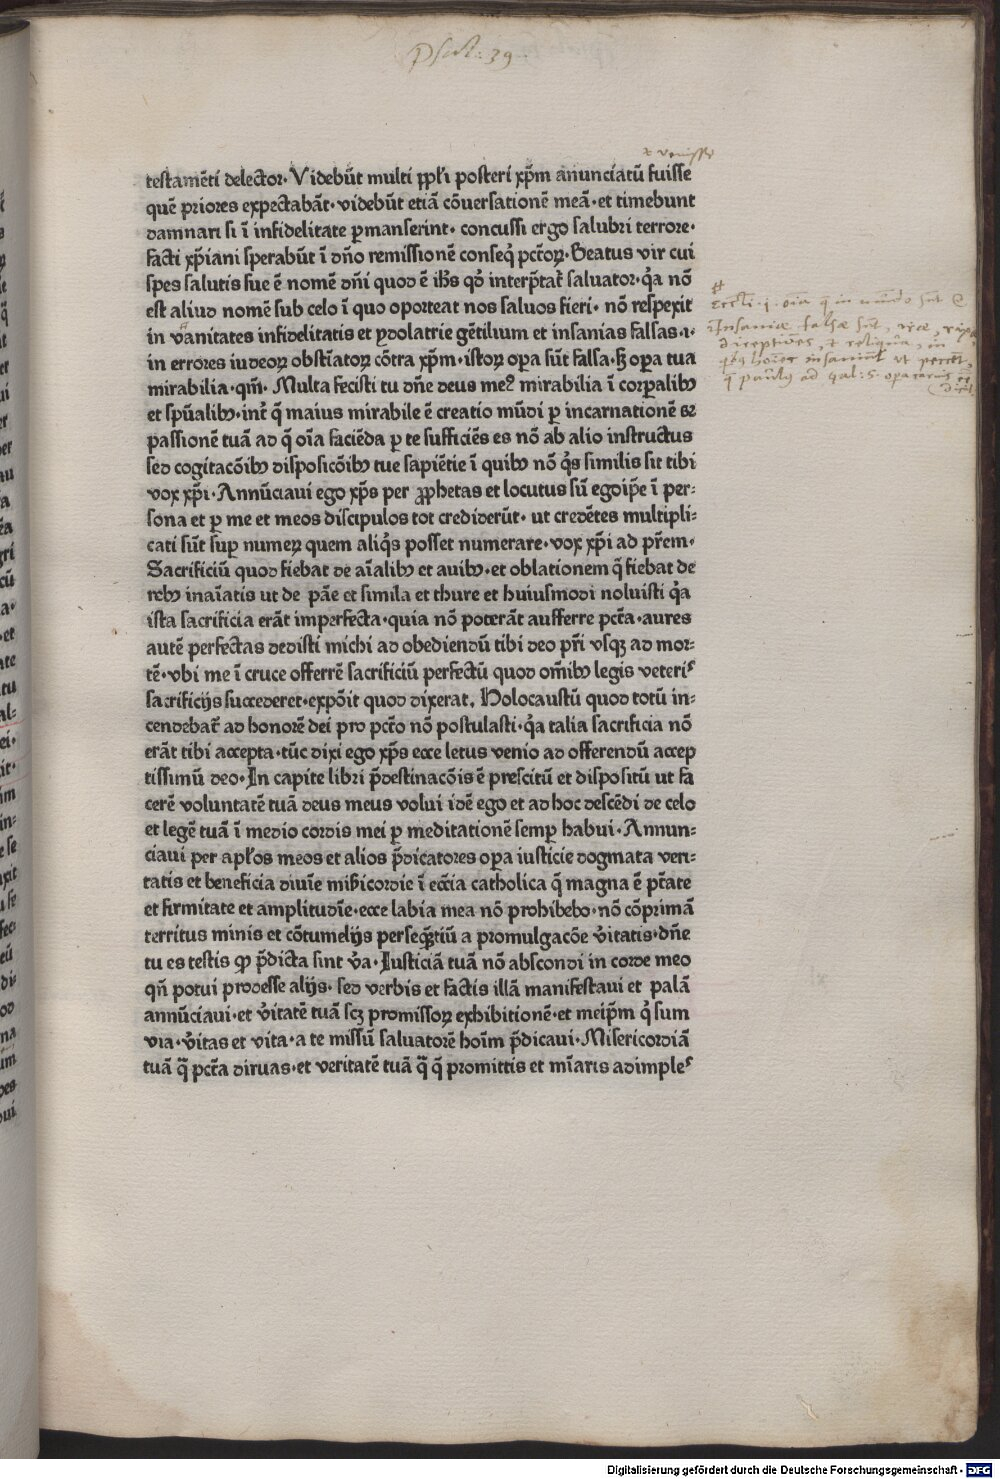 Psal: 39
& venisse
testamēti delector· Videbūt multi ppl'i posteri xp̄m annunciatū fuisse
quē priores expectabāt· videbūt etiā cōuersationē meā· et timebunt
damnari si ī infidelitate p̱manserint· concussi ergo salubri terrore·
facti xp̄iani sperabūt ī dn̄o remissionē conseq̄ pctōꝝ· Beatus vir cui
spes salutis sue ē nomē dn̄i quod ē ih̄s qd̓ interp̄tat᷑ saluator· q̇a nō
est aliud nomē sub celo ī quo oporteat nos saluos fieri· nō respexit
in vanitates infidelitatis et ydolatrie gētilium et insanias falsas ·i·
in errores iudeoꝝ obstīatoꝝ cōtra xp̄m· istoꝝ op̱a sūt falsa· sꝫ op̱a tua
mirabilia· qm̄· Multa fecisti tu dn̄e deus meꝰ mirabilia ī corp̱alibꝫ
et spūalibꝫ· int̓ q̄ maius mirabile ē creatio mūdi p̱ incarnationē ꝛ
passionē tuā ad q̄ oīa faciēda p̱ te sufficiēs es nō ab alio instructus
sed cogitacōibꝫ disposicōibꝫ tue sapiētie ī quibꝫ nō q̇s similis sit tibi
vox xp̄i· Annūciaui ego xp̄s per ꝓphetas et locutus sū egoip̄e ī per⸗
sona et p̱ me et meos discipulos tot crediderūt· ut credētes multipli⸗
cati sūt sup̱ numeꝝ quem aliq̇s posset numerare· vox xp̄i ad pr̄em·
Sacrificiū quod fiebat de aīalibꝫ et auibꝫ· et oblationem q̄ fiebat de
rebꝫ inaīatis ut de pāe et simila et thure et huiusmodi noluisti q̇a
ista sacrificia erāt imperfecta· quia nō poterāt aufferre pctā· aures
autē perfectas dedisti michi ad obediendū tibi deo pr̄i vsqꝫ ad mor⸗
tē· vbi me ī cruce offerrē sacrificiū perfectū quod om̄ibꝫ legis veteriˢ
sacrificijs succederet· expōit quod dixerat. Holocaustū quod totū in⸗
cendebat᷑ ad honorē dei pro pctō nō postulasti· q̇a talia sacrificia nō
erāt tibi accepta· tūc dixi ego xp̄s ecce letus venio ad offerendū accep
tissimū deo· In capite libri p̄destinacōis ē prescitū et dispositū ut fa
cerē voluntatē tuā deus meus volui idē ego et ad hoc descēdi de celo
et legē tuā ī medio cordis mei p̱ meditationē semp̱ habui· Annun⸗
ciaui per apl'os meos et alios p̄dicatores op̱a iusticie dogmata veri⸗
tatis et beneficia diuīe mīẜicordie ī ecc̄ia catholica q̄ magna ē p̄tate
et firmitate et amplitudīe· ecce labia mea nō prohibebo· nō cōprimā
territus minis et cōtumelijs perseq̄ntiū a promulgacōe v̓itatis· dn̄e
tu es testis ꝙ p̄dicta sint v̓a· Iusticiā tuā nō abscondi in corde meo
qn̄ potui prodesse alijs· sed verbis et factis illā manifestaui et palā
annūciaui· et v̓itatē tuā scꝫ promissoꝝ exhibitionē· et meip̄m q̇ sum
via· v̓itas et vita· a te missū saluatorē hoīm p̄dicaui· Misericordiā
tuā q̄ pctā diruas· et veritatē tuā q̄ q̄ promittis et mīaris adimpleˢ
Eccl'i· j· oīa q̄ in mūdo sūt &
Insaniæ falsæ sūt, ,
 & reliqua, in
 hōies
 paulus ad gal: 5· opera carnis
Digitalisierung gefördert durch die Deutsche Forschungsgemeinschaft - DFG